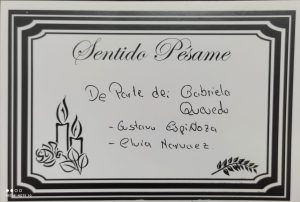 Sentido Pésame
De Parte de: Gabriela
Quevedo
- Gustavo Espinoza
- Elvia Narvaez